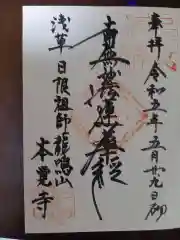 奉拝 令和五年五月廿九日
南無妙法蓮華経
浅草 日限祖師 龍鳴山
本覚寺